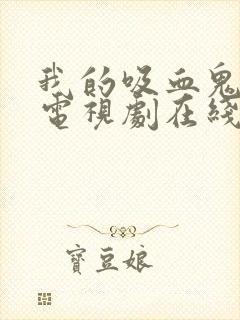 我的吸血鬼
電視劇在綫
寶豆娘